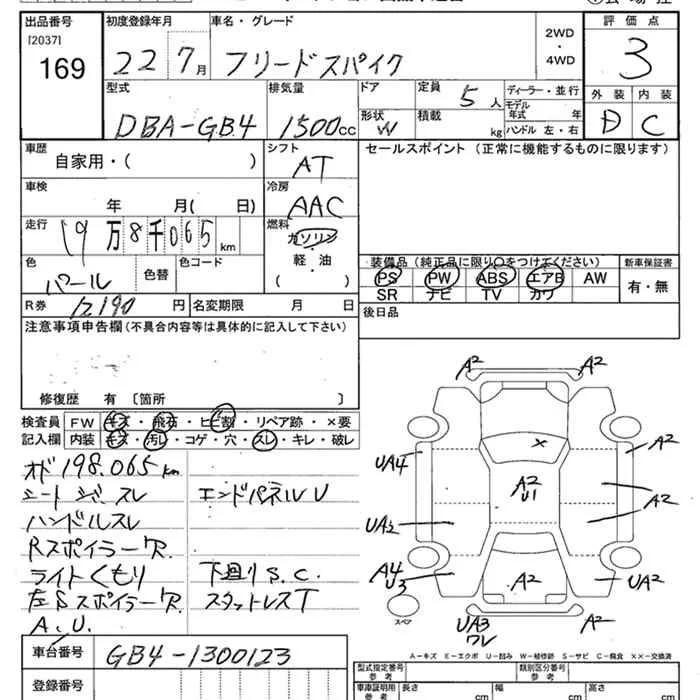 出品番号 初度登録年月 車名・グレード 評価点
[2037] 2WD
169 22 7月 フリードスパイク ・ 3
4WD
型式 排気量 ドア 定員 5人 ディーラー・並行 外装 内装
DBA-GB4 1500cc 形状 W 積載 kg モデル年式 年 D C
ハンドル 左・右
車歴 シフト セールスポイント(正常に機能するものに限ります)
自家用・( ) AT
車検 冷房
年 月( 日) AAC
走行 燃料
19万8千065km ガソリン
軽・油
( )
色 色替 色コード
パール
装備品(純正品に限り○をつけてください) 新車保証書
PS PW ABS エアB AW 有・無
SR ナビ TV カワ
R券 12190円 名変期限 月 日 後日品
注意事項申告欄(不具合内容等は具体的に記入して下さい)
修復歴 有〔箇所 〕
検査員 FW キズ・飛石・ヒビ割・リペア跡・×要
記入欄 内装 キズ・汚レ・コゲ・穴・スレ・キレ・破レ
オド198.065km
シートシワ・スレ エンドパネルU
ハンドルスレ
Rスポイラー"R.
ライトくもり 下廻りS.C.
左Sスポイラー"R. スタットレスT
A.U.
A2 A2
×
UA4 A2
A2
U1
A2
UA2
A4
U3 A2 UA2
スペア
UA3
ワレ A2
A−キズ E−エクボ U−凹み W−補修跡 S−サビ C−腐食 ××−交換済
車台番号 GB4-1300123
登録番号
型式指定番号 類別区分番号
参考
車庫証明用 長さ 幅 高さ
参考 cm cm cm